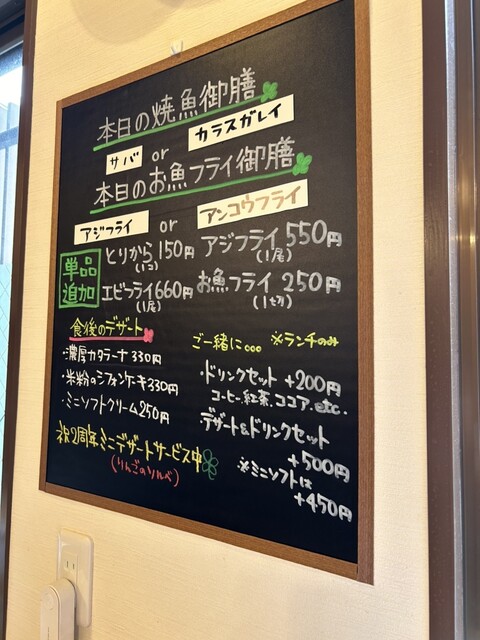 本日の焼魚御膳
サバ or カラスガレイ
本日のお魚フライ御膳
アジフライ or アンコウフライ
単品追加
とりから150円 アジフライ550円
(1コ) (1尾)
エビフライ660円 お魚フライ250円
(1尾) (1切)
食後のデザート
・濃厚カタラーナ330円
・米粉のシフォンケーキ330円
・ミニソフトクリーム250円
祝2周年ミニデザートサービス中
(りんごのソルベ)
ご一緒に… ※ランチのみ
・ドリンクセット+200円
コーヒー、紅茶、ココア、etc.
・デザート&ドリンクセット
+500円
※ミニソフトは
+450円